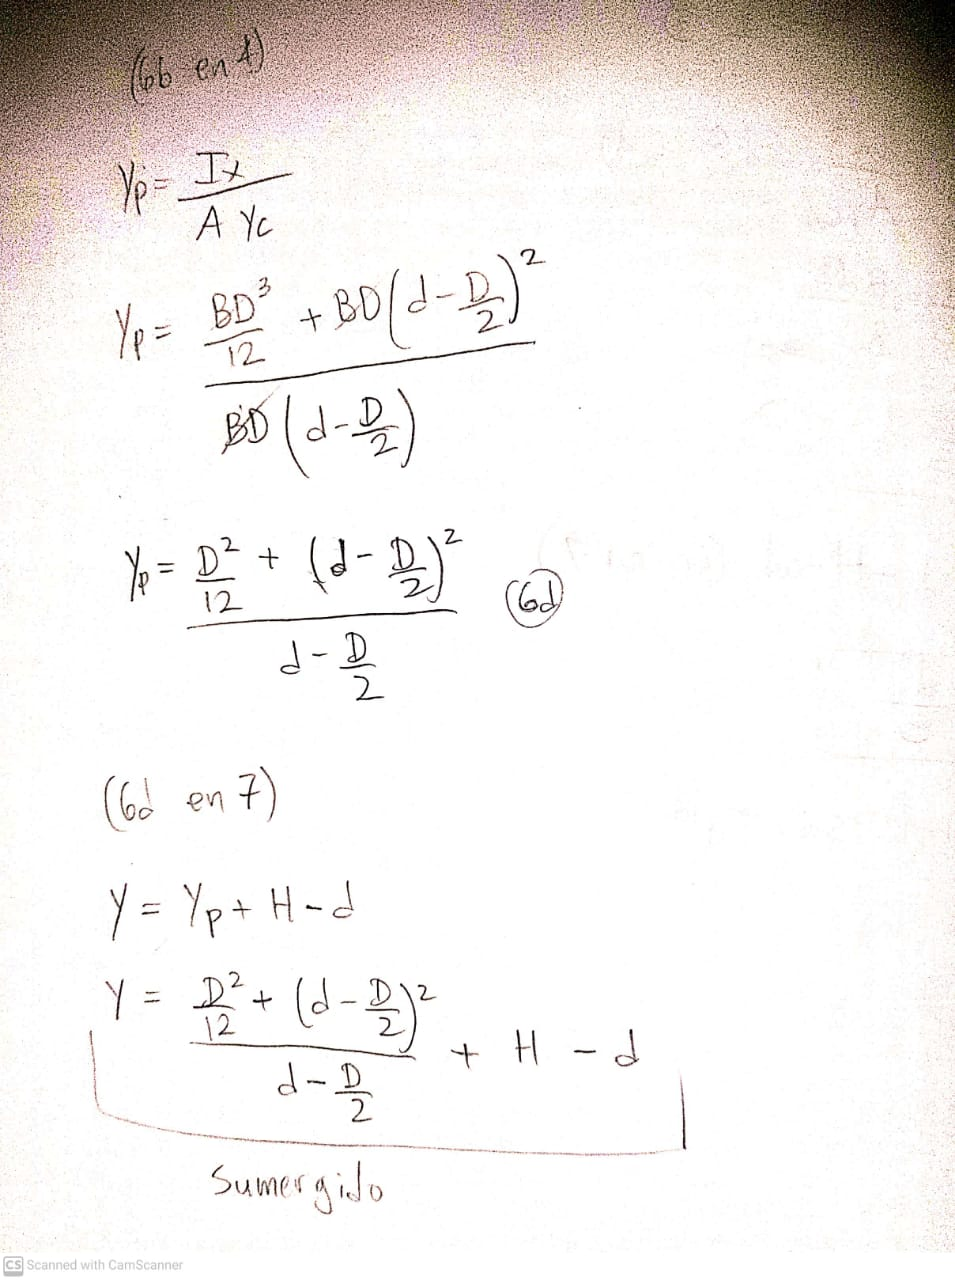 (6b en 4)
Yp = Ix / A Yc
Yp = BD³/12 + BD(d - D/2)² / BD(d - D/2)
Yp = D²/12 + (d - D/2)² / d - D/2 (6d)
(6d en 7)
Y = Yp + H - d
Y = D²/12 + (d - D/2)² / d - D/2 + H - d
Sumergido
CS Scanned with CamScanner